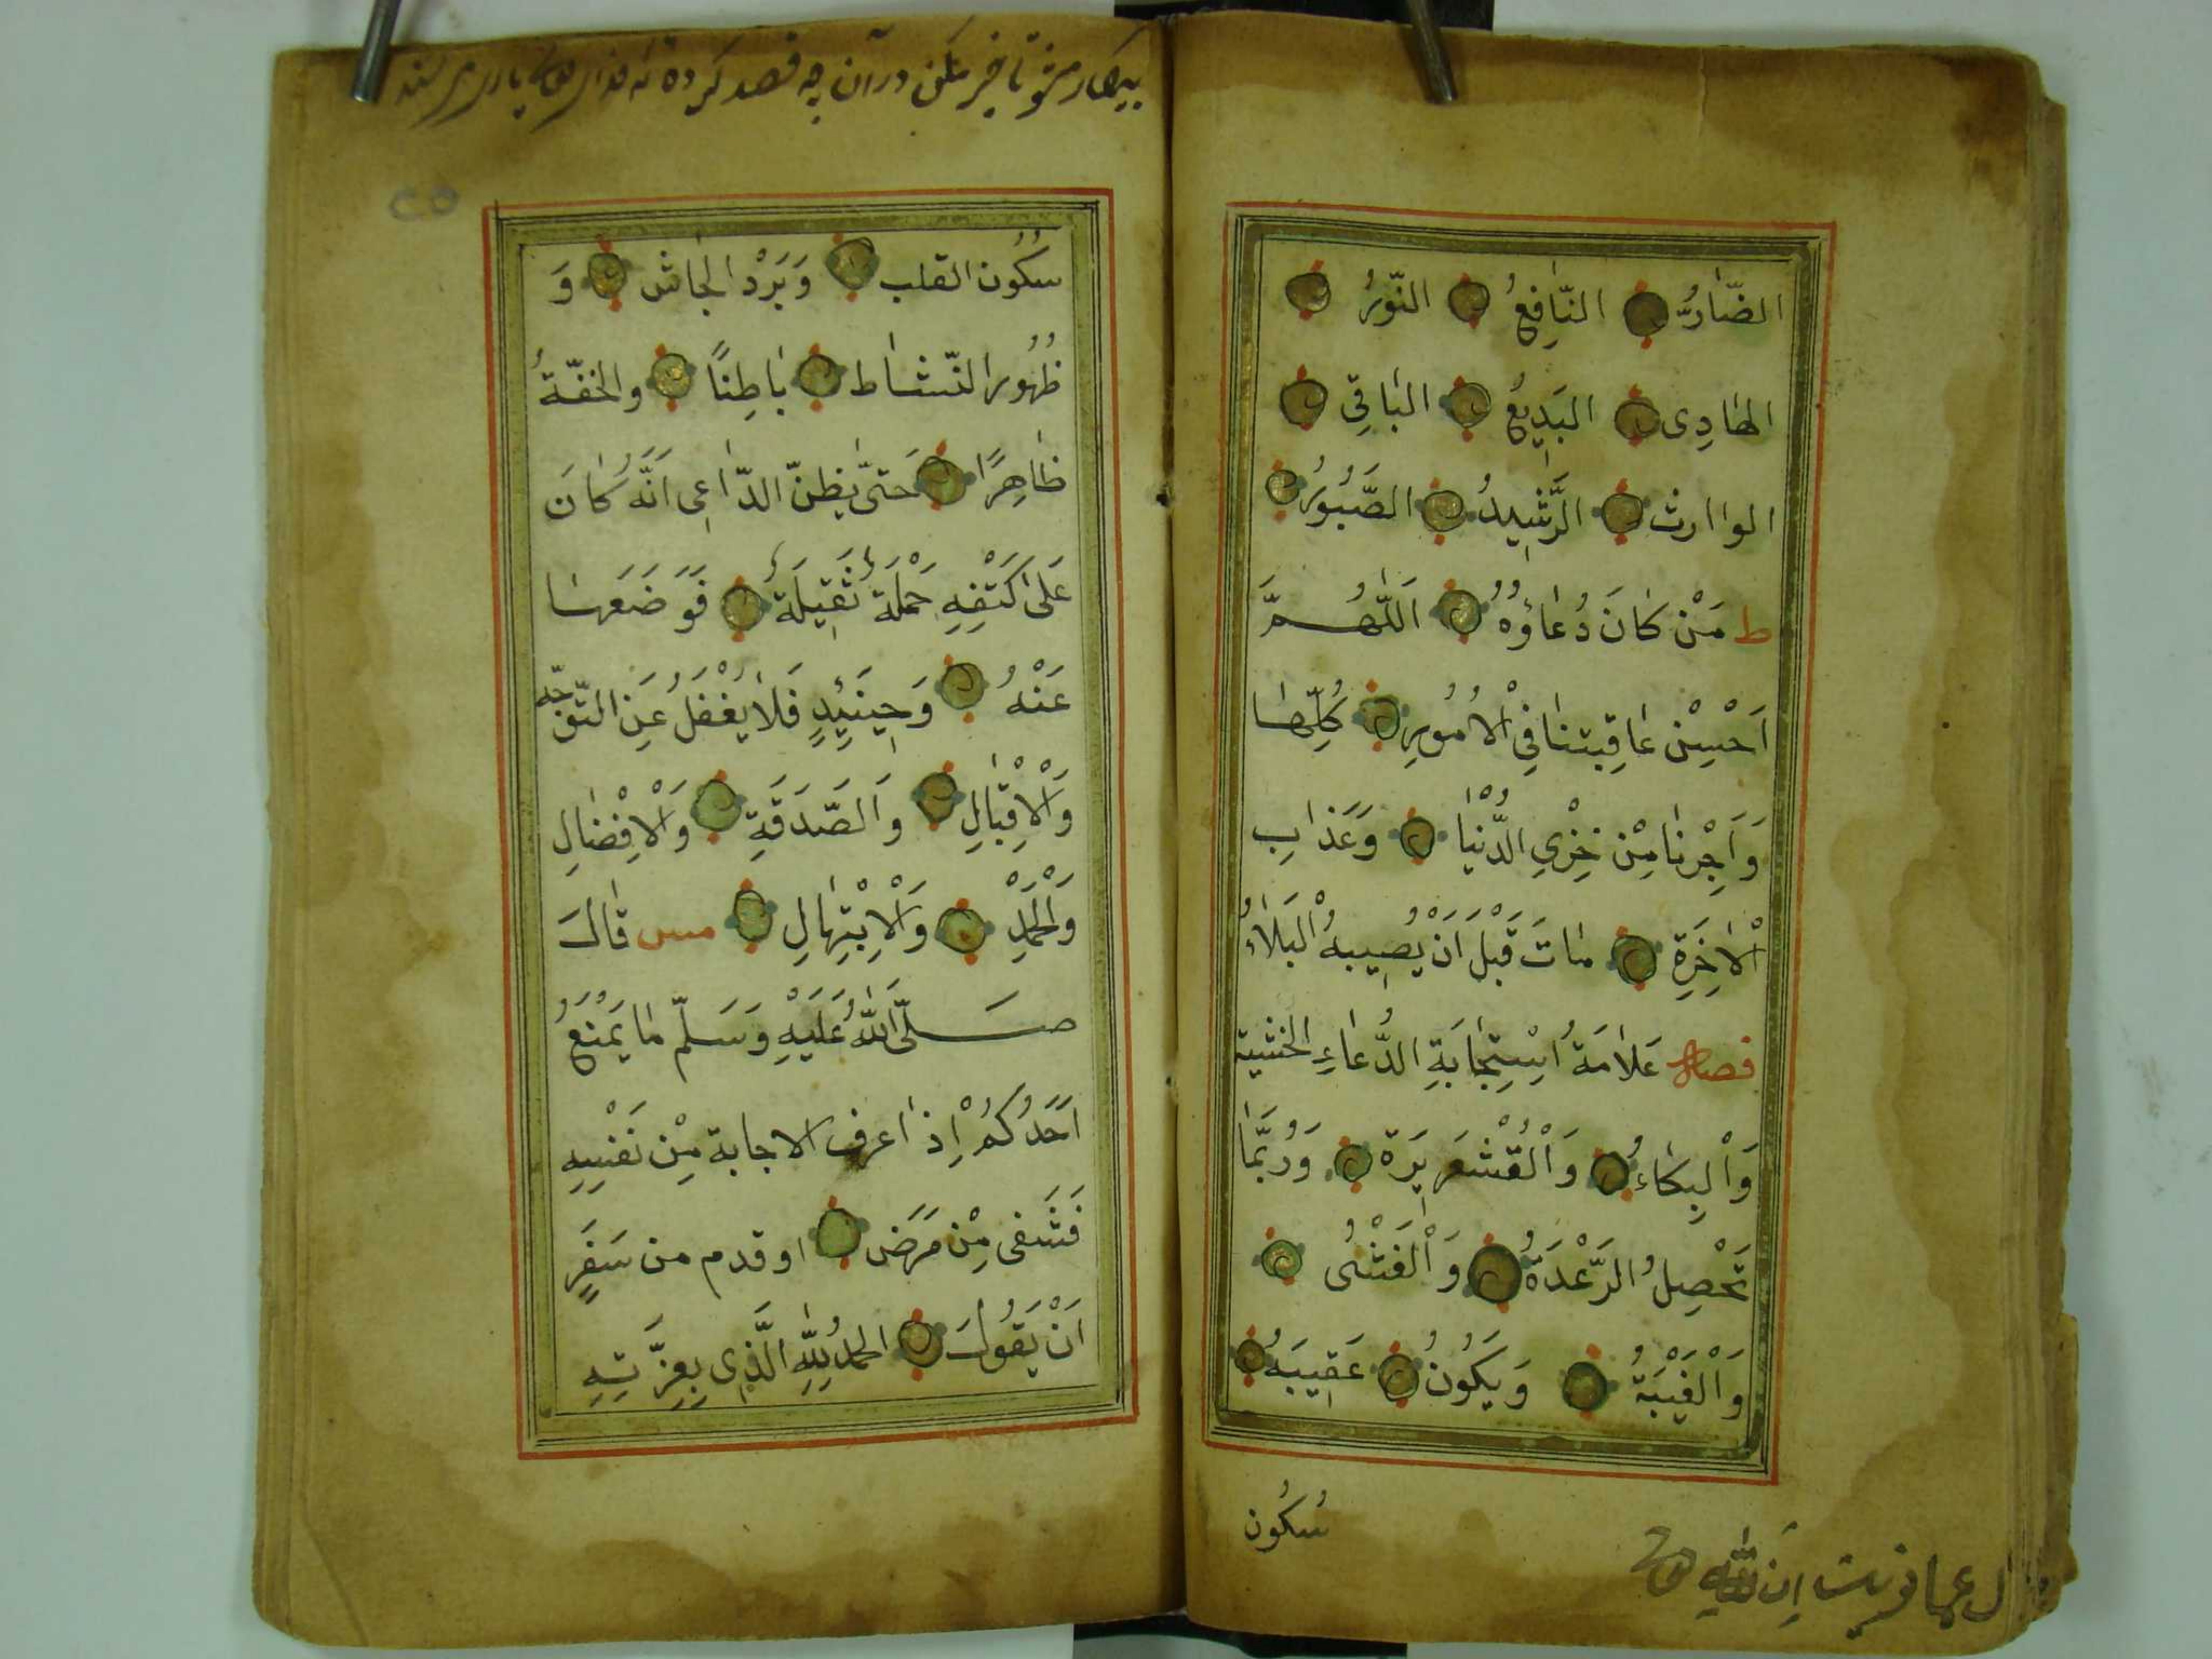 الضَّارُّ النَّافِعُ النُّورُ
الهَادِى البَدِيعُ البَاقِى
الواارث الرَّشِيدُ الصَّبُورُ
ط مَنْ كَانَ دُعَاؤُهُ اَللّٰهُمَّ
اَحْسِنْ عَاقِبَتنَا فِى الْاُمُورِ كُلِّهَا
وَاَجِرْنَا مِنْ خِزْيِ الدُّنْيَا وَعَذَابِ
الْاٰخِرَةِ مَاتَ قَبْلَ اَنْ يُصِيبهُ الْبَلَاءُ
فصل عَلَامَةُ اسْتِجَابَةِ الدُّعَاءِ الخشية
وَالْبِكَاءُ وَالْقُشْعَرِيرَة وَرُبَّمَا
تَحْصِلُ الرَّعْدَةُ وَالْغَشْىُ
وَالْغَيْبَةُ وَيَكُونُ عَقِيبَهُ
سُكُون
اِنَّ اللّٰهِ
بيكار مشو تاخير مكن در آن چه قصد كرده
٢٥
سُكُون القلب وَبَرْدُ الجَاش وَ
ظُهُور النّشاط بَاطِنًا والخفّةُ
ظَاهِرًا حَتّى يَظنّ الدّاعِى اَنَّهُ كَانَ
عَلَى كَتْفِهِ حَمْلَةً ثَقِيلَةً فَوَضَعَهَا
عَنْهُ وَحِينَئِذٍ فَلَا يُغْفَلُ عَنِ التّوجّه
وَالْاِقْبَالِ وَالصَّدَقَةِ وَالْاِفْضَالِ
وَالْحَمْدِ وَالْاِبْتِهَالِ مس قَالَ
صَلَّى اللّٰهُ عَلَيْهِ وَسَلّمَ مَا يَمْنَعُ
اَحَدُكُمْ اِذَا عرف الاجابة مِنْ نَفْسِهِ
فَشَفى مِنْ مَرَض او قدم من سَفَرٍ
اَنْ يَقُولَ الحمدُ لِلّٰهِ الَّذِى بِعِزَّتِهِ